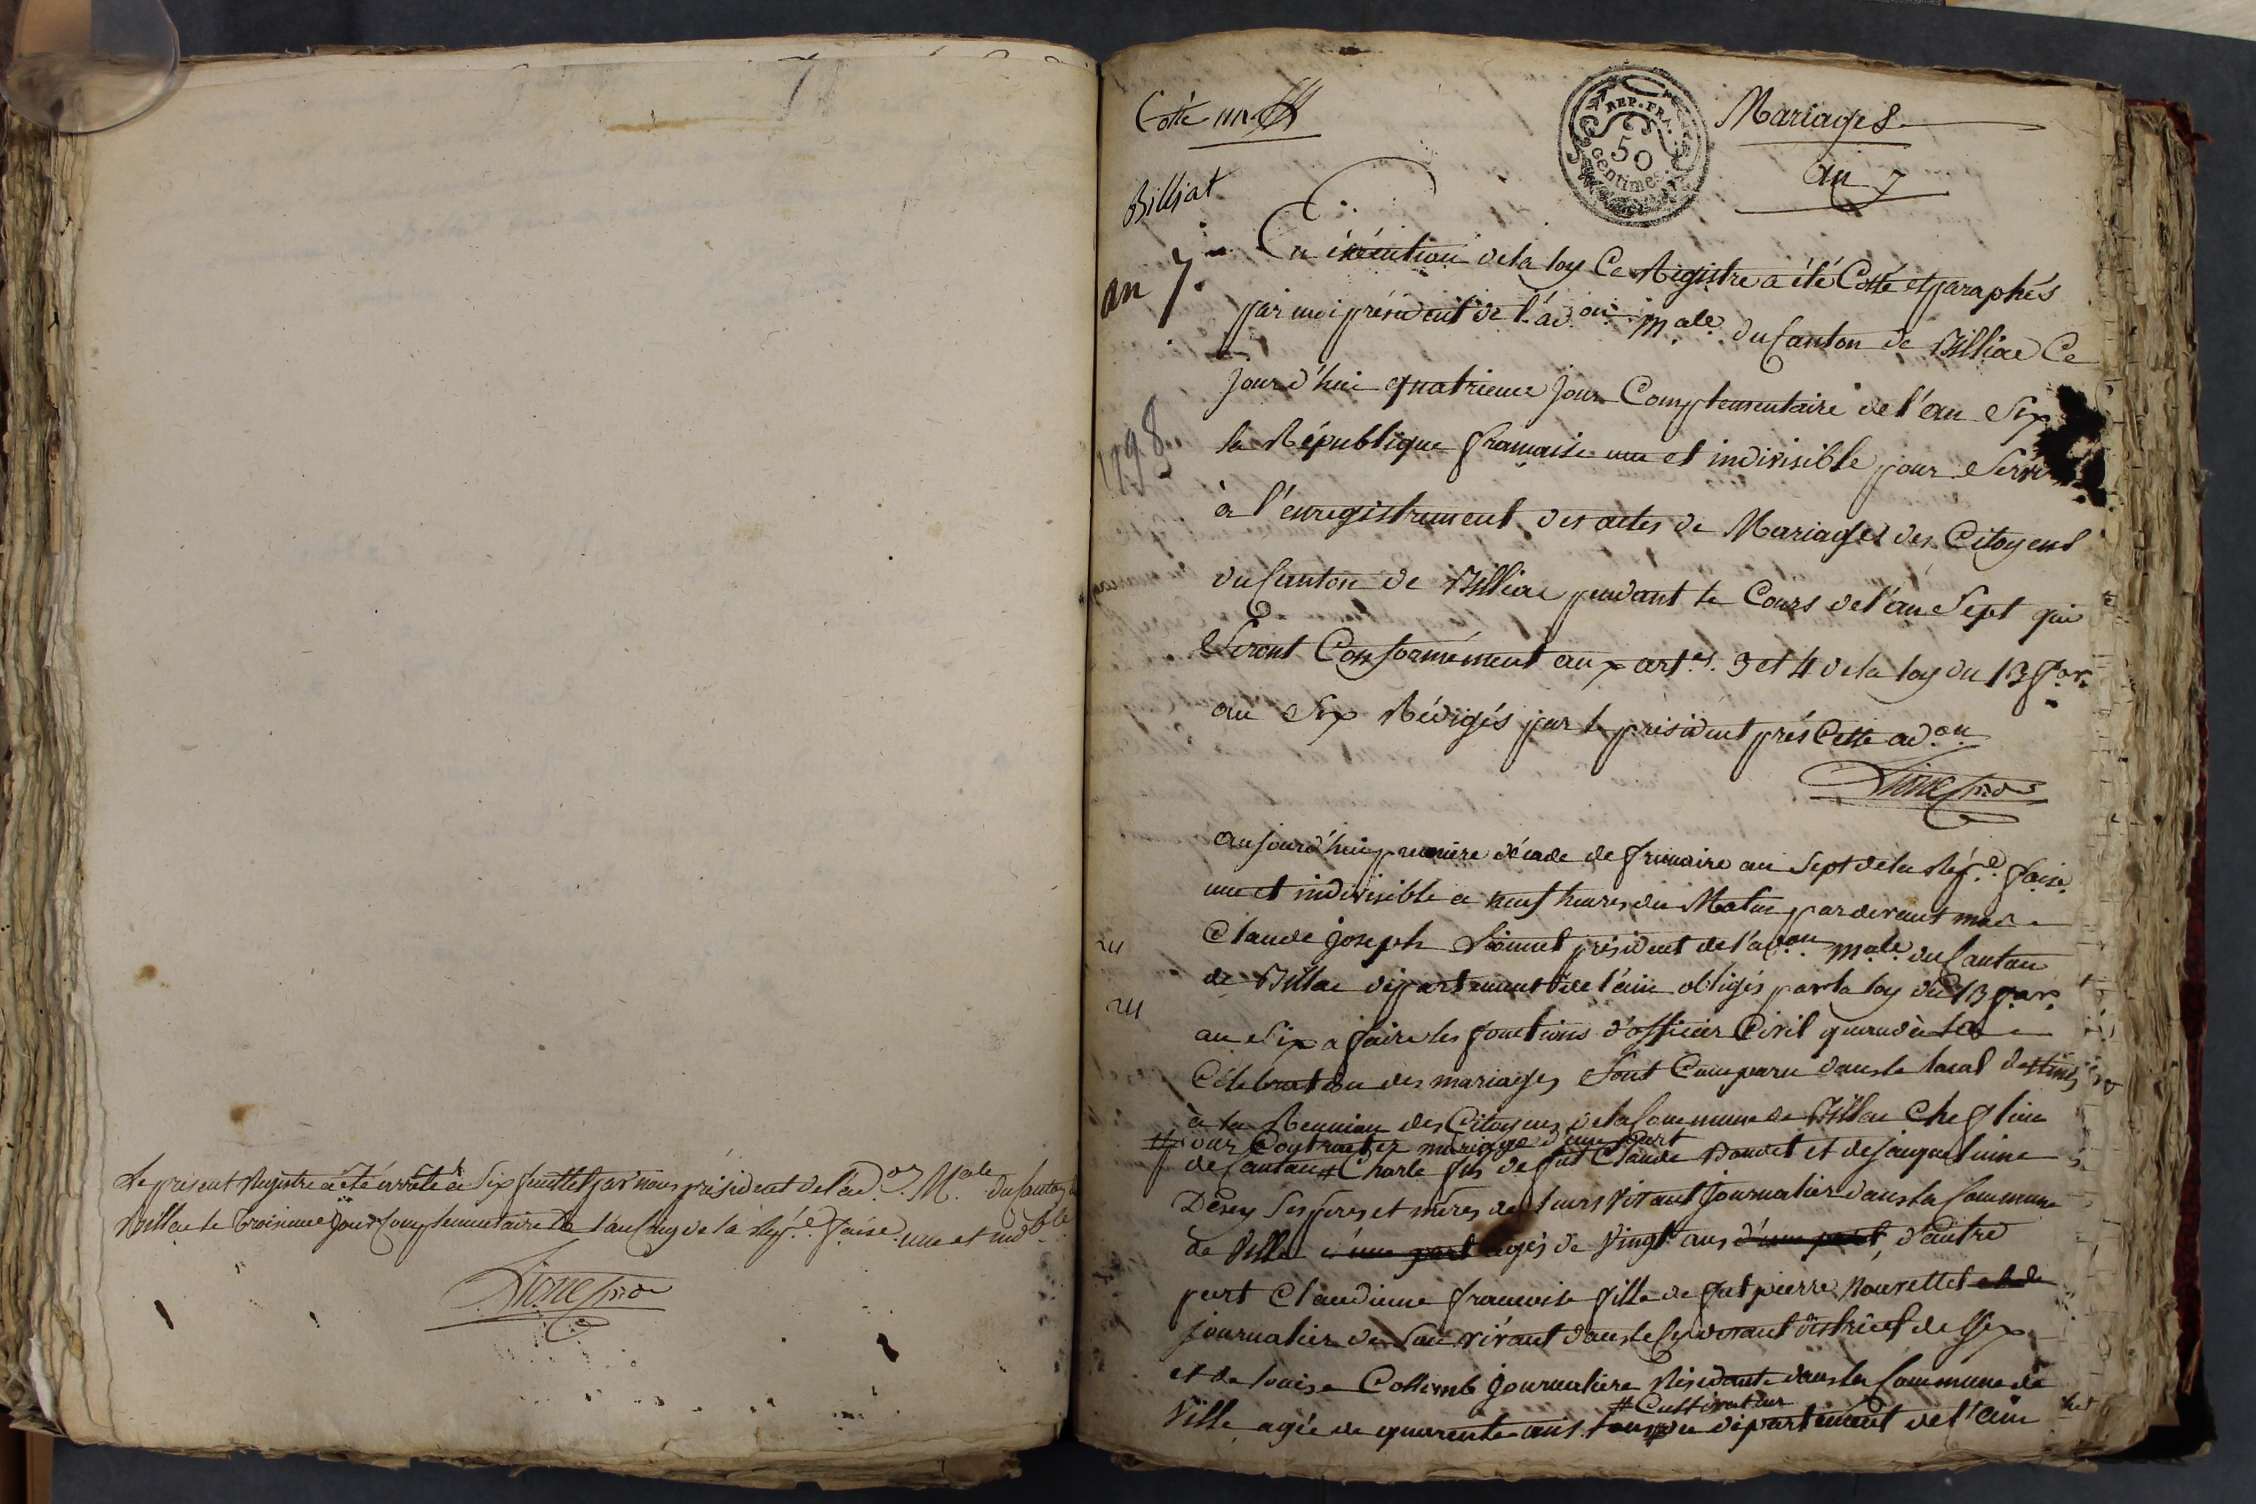 Le présent Registre a été arrêté à Six feuillet par nous président de l'ad.on M.ale du Canton de
Billac le troisieme Jour Complementaire de l'an Cinq de la Rép.e f.aise une et ind.ble
Coté un
REP. FRA.
50
centimes
Mariages
an 7
Billiat
an 7.
1798
En éxécution de la loy Ce Registre a été Cotté et paraphés
par moi président de l'ad.on m.ale du Canton de Billiac Ce
Jour d'hui quatrieme Jour Complementaire de l'an Six
la République francaise une et indivisible pour Servir
à l'enregistrement des actes de Mariages des Citoyens
du Canton de Billiac pendant le Cours de l'an Sept qui
Seront Conformément aux art.es 3 et 4 de la loy du 13 f.or.
an Six Rédigés par le président prés Cette ad.on
aujourd'hui premiere décade de frimaire an Sept de la Rép.e f.aise
une et indivisible a neuf heures du Matin pardevant moi
Claude Joseph président de l'ad.on m.ale du Canton
de Billac département de l'ain obligés par la loy du 13 f.or.
an Six a faire les fonctions d'officier Civil quand à la
Célébration des mariages Sont Comparu dans le local destinés
à la Reunion des Citoyens de la Commune de Billac Chef lieu
# pour Contracter mariage d'une part
de Canton # Charle fils de fut Claude et de jaqueline
Derey Ses peres et méres de leurs vivant Journalier dans la Commune
de Ville d'une part agés de Vingt ans d'une part, d'autre
part Claudinne francoise fille de fut pierre et de
journalier de Son vivant dans le Cy devant district de Gex
et de louise Collomb Journaliere Residante dans la Commune de
# Cultivateur
Ville agée de quarente ans tous du département de l'ain